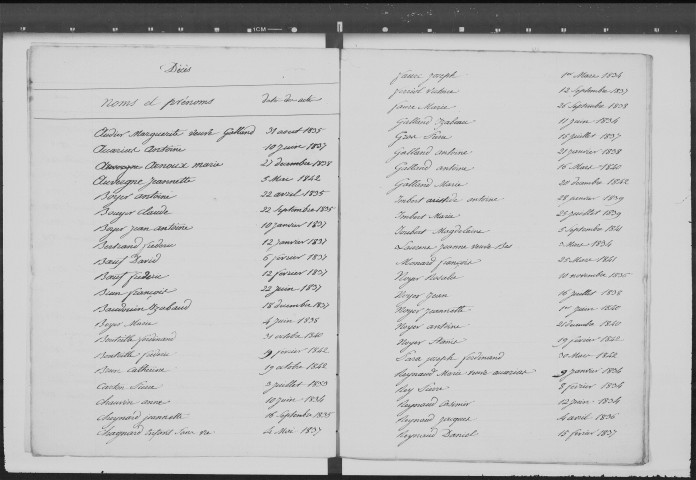 1CM
Décès
noms et prénoms date des actes
Audier Marguerite veuve Galland 31 aout 1835
Aucarias Antoine 10 janv 1837
Auvergne Arnoux marie 27 décembre 1838
Auvergne Jeannette 5 Mai 1842
Boyer antoine 22 avril 1835
Bouyer Claude 22 Septembre 1835
Boyer jean antoine 10 janvier 1837
Bertrand frédéric 12 janvier 1837
Bœuf David 6 février 1837
Bœuf frédéric 12 février 1837
Biun françois 22 juin 1837
Baudouin Izabeau 18 décembre 1837
Boyer Marie 4 juin 1838
Bouteille ferdinand 31 octobre 1840
Bouteille frédéric 9 février 1842
Bonn Catherine 19 octobre 1842
Carton Pierre 3 juillet 1833
Chauvin anne 10 juin 1834
Chaynard jeannette 16 Septembre 1835
Chagnard Enfant Sans vie 4 Mai 1837
faure joseph 1er Mars 1834
12 Septembre 1837
faure Marie 26 Septembre 1838
Galland Izabeau 11 juin 1834
Gras Pierre 15 juillet 1837
Galland antoine 21 janvier 1838
Galland antoine 16 Mars 1840
Galland Marie 20 décembre 1842
Imbert aristide antoine 28 janvier 1839
Imbert Marie 25 juillet 1839
Imbert Magdelaine 5 Septembre 1841
jeanne veuve 3 Mars 1834
Monard françois 25 Mars 1841
Noyer Rosalie 10 novembre 1835
Noyer Jean 16 juillet 1838
Noyer jeannette 1er juin 1840
Noyer antoine 21 décembre 1840
Noyer 19 février 1842
joseph ferdinand 31 Mars 1842
Raynaud Marie veuve aucarias 9 janvier 1834
Rey Pierre 8 février 1834
Raynaud Casimir 12 juin 1834
Raynaud jacques 4 avril 1836
Raynaud Daniel 15 février 1837